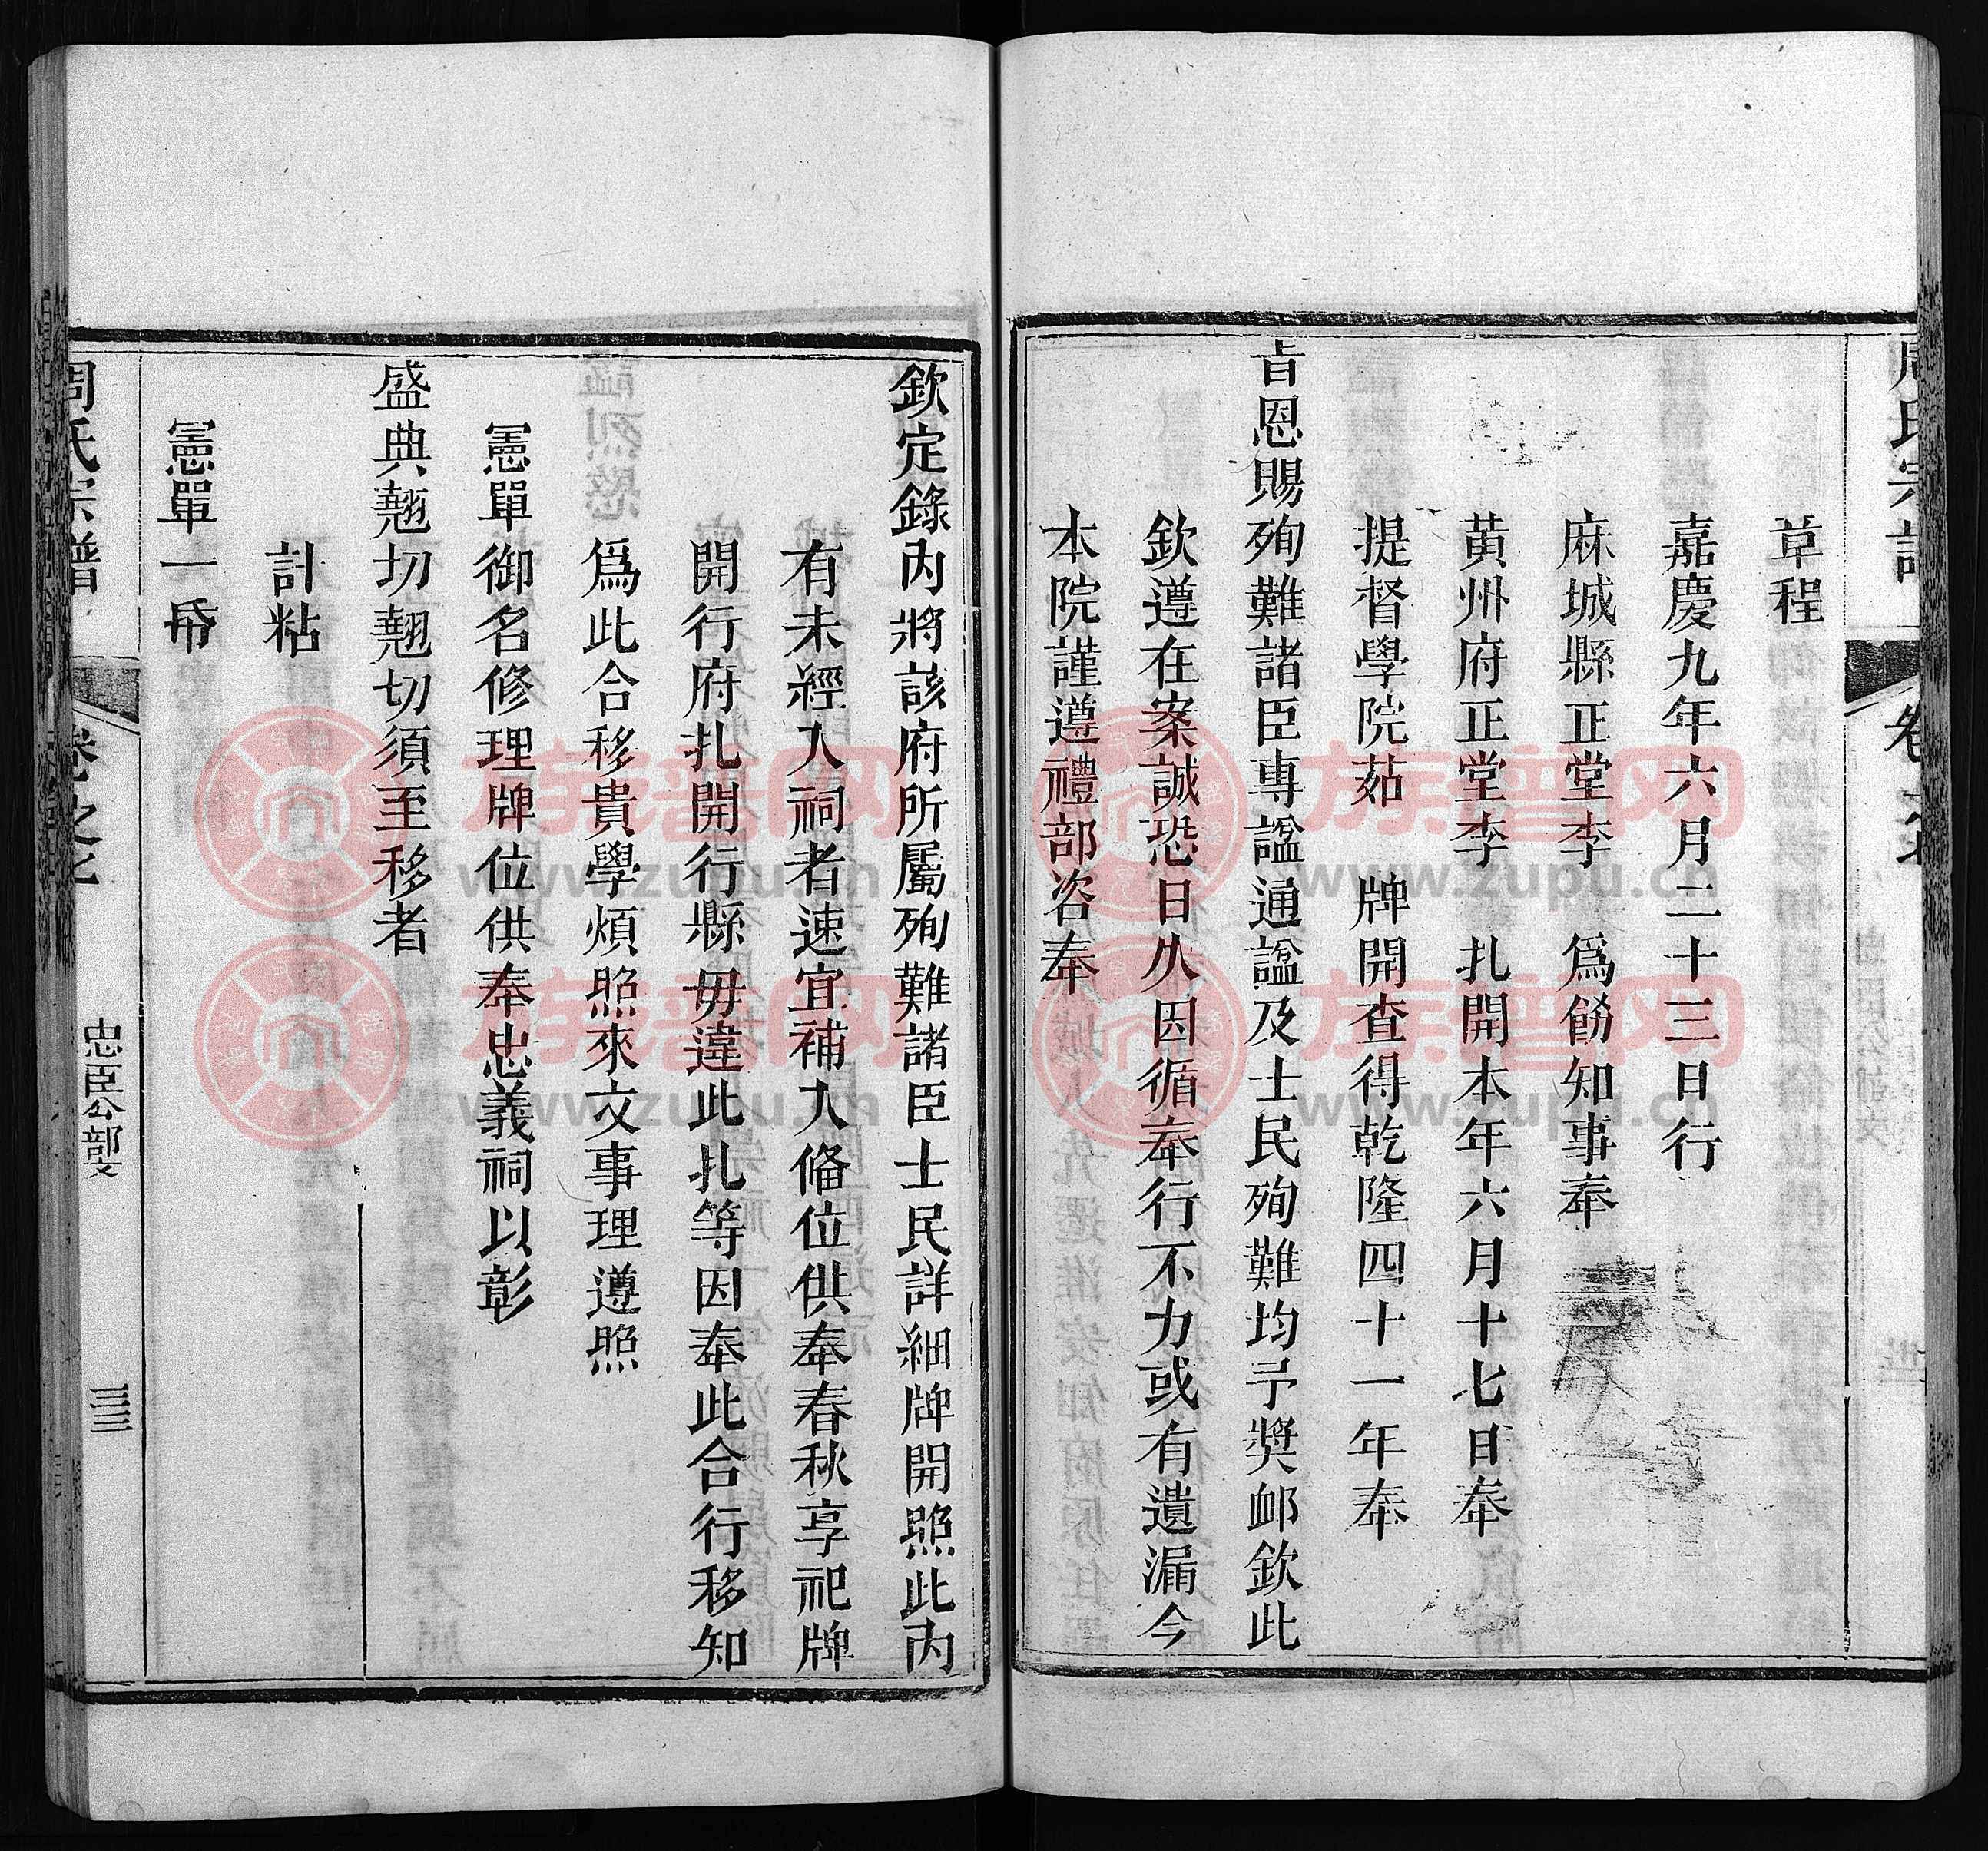 草程
嘉慶九年六月二十三日行
麻城縣正堂李　爲飭知事奉
黃州府正堂李　扎開本年六月十七日奉
提督學院茹　牌開查得乾隆四十一年奉
旨恩賜殉難諸臣專諡通諡及士民殉難均予獎卹欽此
欽遵在案誠恐日久因循奉行不力或有遺漏今
本院謹遵禮部咨奉
欽定錄內將該府所屬殉難諸臣士民詳細牌開照此內
有未經入祠者速宜補入俻位供奉春秋享祀牌
開行府扎開行縣毋違此扎等因奉此合行移知
爲此合移貴學煩照來文事理遵照
憲單御名修理牌位供奉忠義祠以彰
盛典翹切翹切須至移者
計粘
憲單一帋
周氏宗譜
卷之七
忠臣公部文
三三